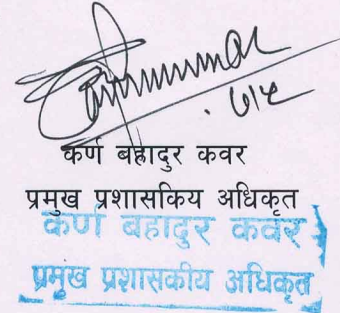 ७/५
कर्ण बहादुर कवर
प्रमुख प्रशासकिय अधिकृत
कर्ण बहादुर कवर
प्रमुख प्रशासकीय अधिकृत